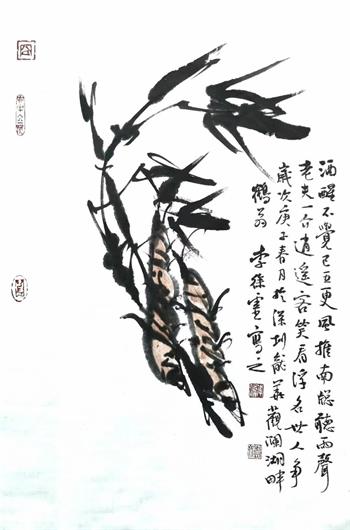 酒醒不覺已五更風推南窓聽雨聲
老夫一介逍遥客笑看浮名世人争
歲次庚子春月於深圳龍華觀瀾湖畔
鶴翁 李徐憲寫之